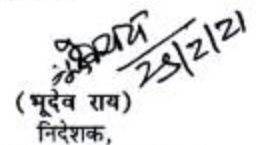 25/2/21
(भूदेव राय)
निदेशक,